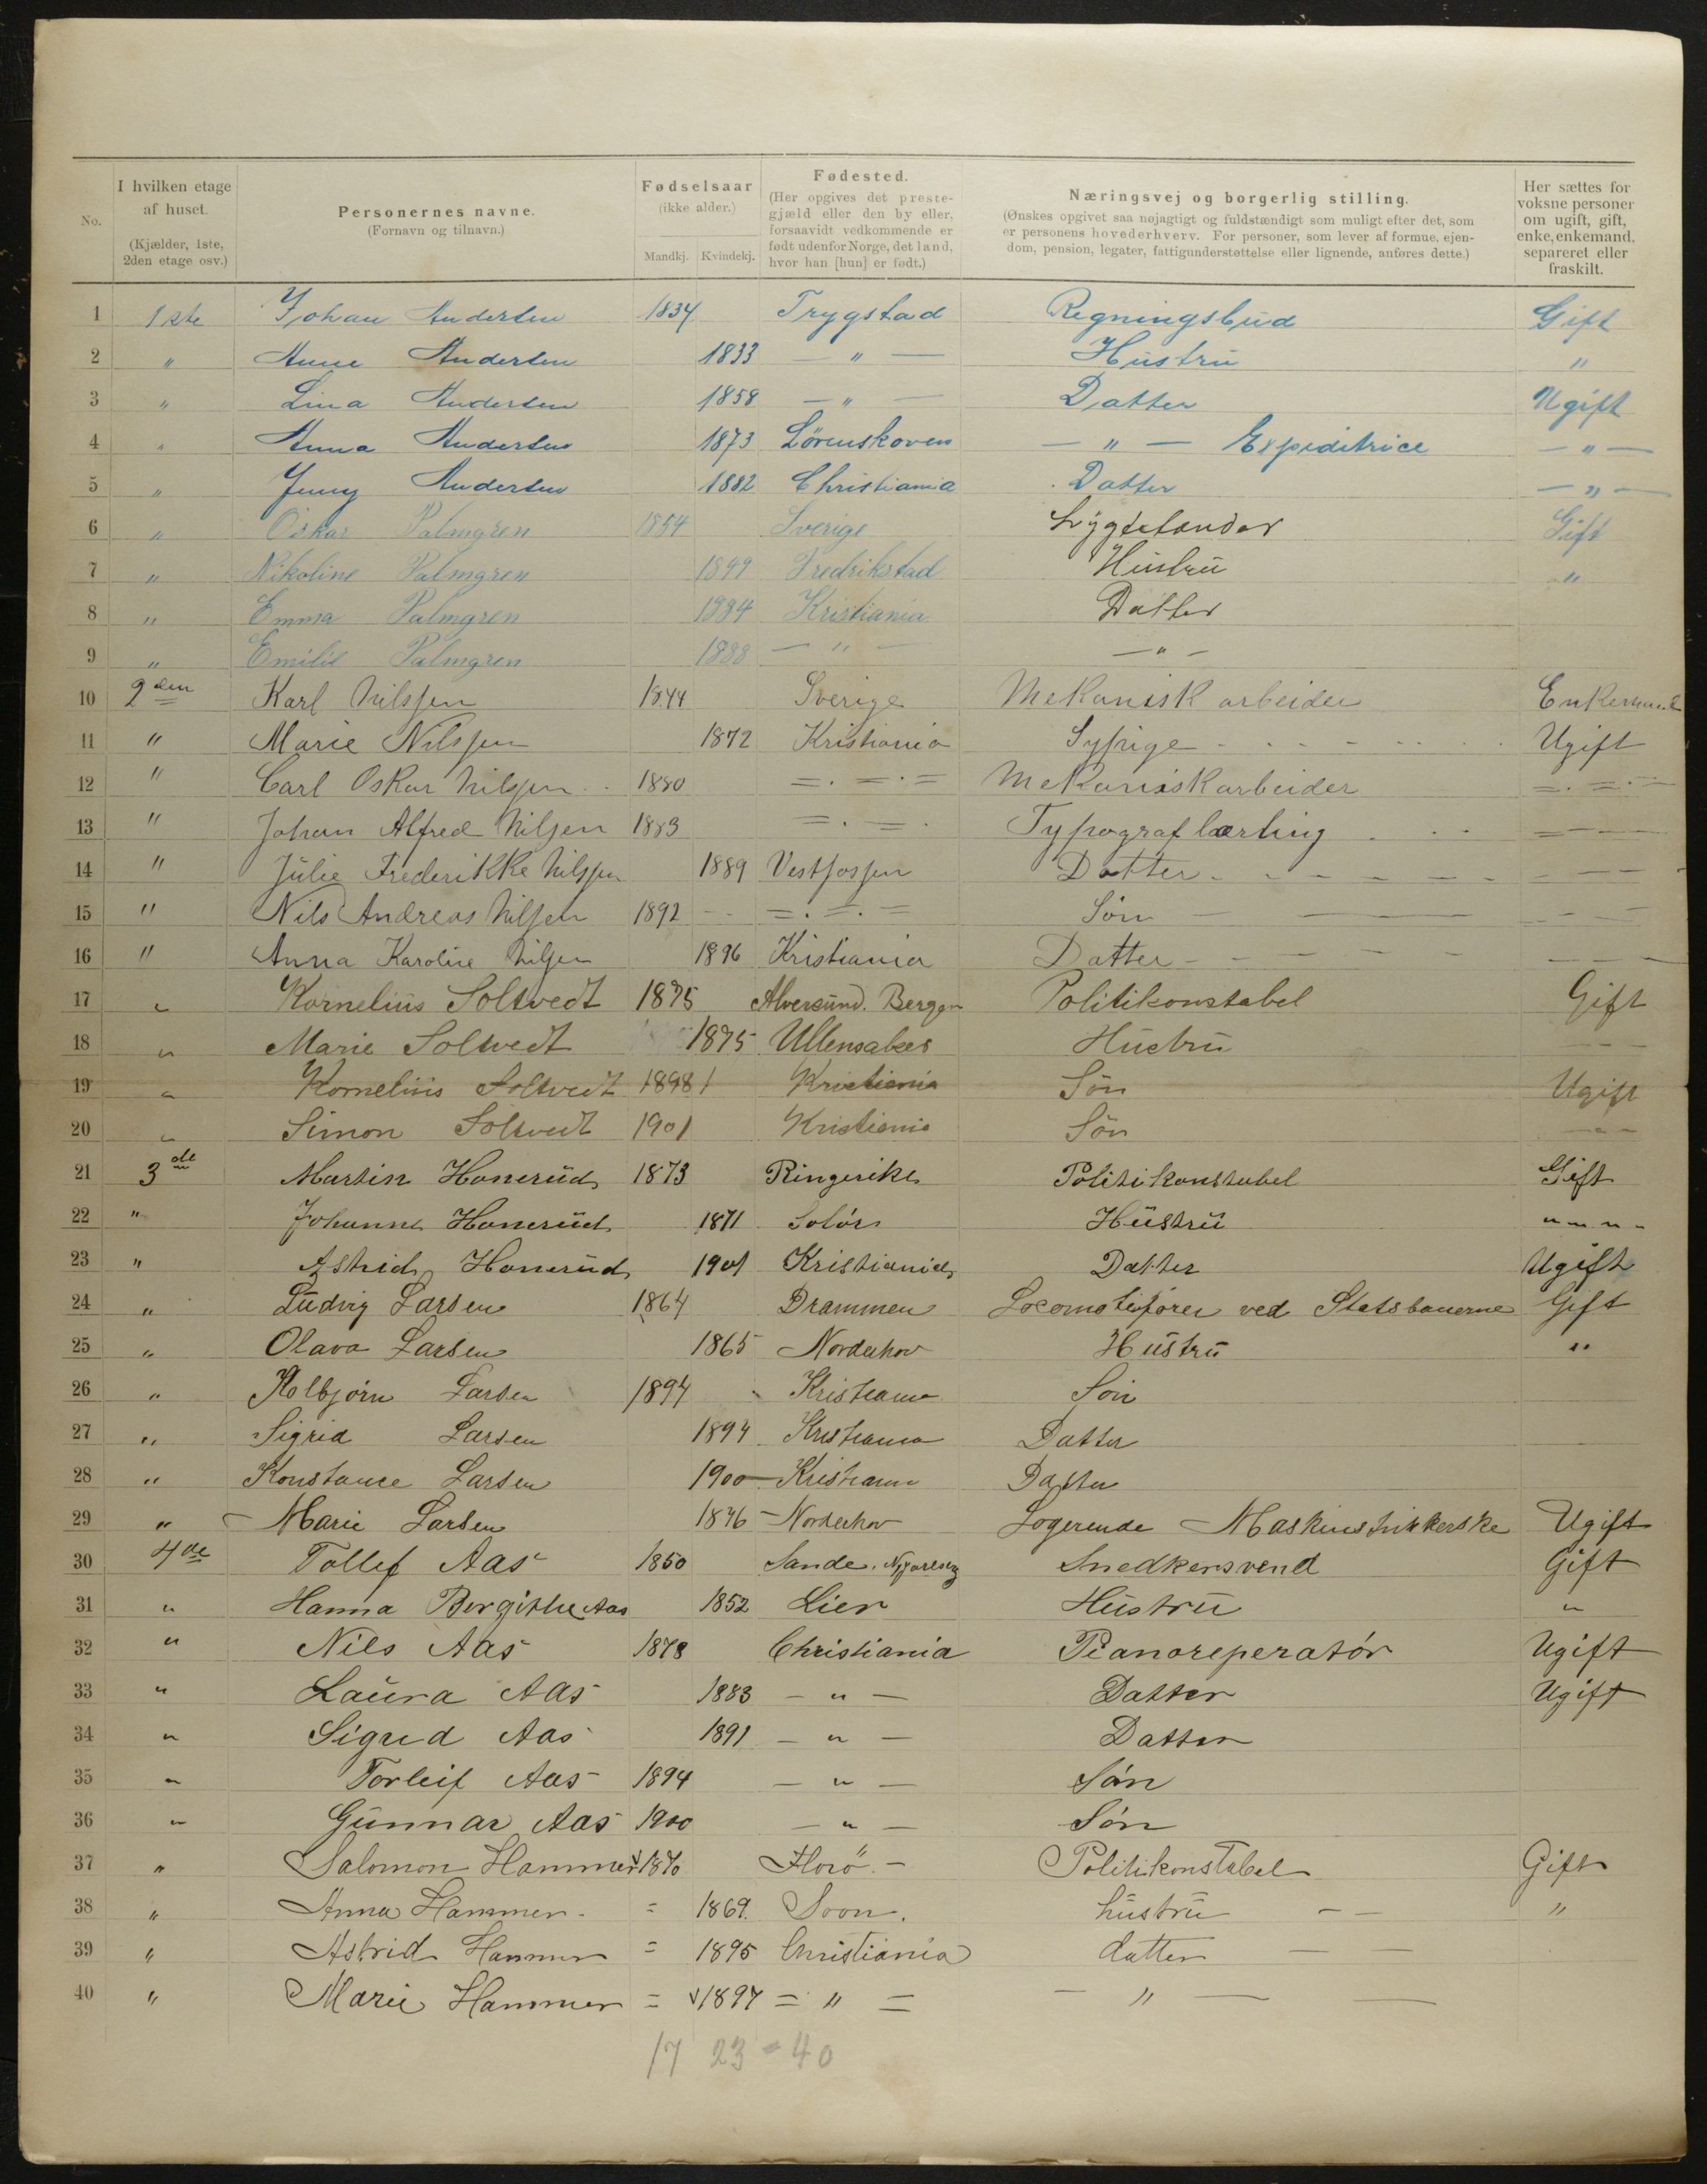 No.
I hvilken etage af huset.
(Kjælder, 1ste, 2den etage osv.)
Personernes navne.
(Fornavn og tilnavn.)
Fødselsaar
(ikke alder.)
Mandkj. Kvindekj.
Fødested.
(Her opgives det prestegjæld eller den by eller, forsaavidt vedkommende er født udenfor Norge, det land, hvor han [hun] er født.)
Næringsvej og borgerlig stilling.
(Ønskes opgivet saa nøjagtigt og fuldstændigt som muligt efter det, som er personens hovederhverv. For personer, som lever af formue, ejendom, pension, legater, fattigunderstøttelse eller lignende, anføres dette.)
Her sættes for voksne personer om ugift, gift, enke, enkemand, separeret eller fraskilt.
1 1ste Johan Andersen 1834 Trygstad Regningsbud Gift
2 " Anne Andersen 1833 — " — Hustru "
3 " Lina Andersen 1858 — " — Datter Ugift
4 " Anna Andersen 1873 Lørenskoven — " — Expeditrice — " —
5 " Jenny Andersen 1882 Christiania Datter — " —
6 " Oskar Palmgren 1854 Sverige Lygtetænder Gift
7 " Nikoline Palmgren 1849 Fredrikstad Hustru "
8 " Emma Palmgren 1884 Kristiania Datter
9 " Emilie Palmgren 1888 — " — — " —
10 2den Karl Nilssen 1844 Sverige Mekanisk arbeider Enkemand
11 " Marie Nilssen 1872 Kristiania Sypige Ugift
12 " Carl Oskar Nilssen 1880 =.=.= Mekaniskarbeider =.=.—
13 " Johan Alfred Nilsen 1883 =.=. Typograf lærling — — —
14 " Julie Frederikke Nilssen 1889 Vestfossen Datter — — —
15 " Nils Andreas Nilsen 1892 =.=.= Søn — — —
16 " Anna Karoline Nilsen 1896 Kristiania Datter — — —
17 " Kornelius Soltvedt 1875 Alversund. Bergen Politikonstabel Gift
18 " Marie Soltvedt 1875 Ullensaker Hustru — — —
19 " Kornelius Soltvedt 1898 Kristiania Søn Ugift
20 " Simon Soltvedt 1901 Kristiania Søn — " —
21 3die Martin Honerud 1873 Ringerike Politikonstabel Gift
22 " Johanne Honerud 1871 Solør Hustru " "
23 " Astrid Honerud 1901 Kristiania Datter Ugift
24 " Ludvig Larsen 1864 Drammen Locomotivfører ved Statsbanerne Gift
25 " Olava Larsen 1865 Norderhov Hustru "
26 " Kolbjørn Larsen 1894 Kristiania Søn
27 " Sigrid Larsen 1894 Kristiania Datter
28 " Konstance Larsen 1900 Kristiania Datter
29 " Marie Larsen 1876 Norderhov Logerende Maskinstrikkerske Ugift
30 4de Tollef Aas 1850 Sande. Snedkersvend Gift
31 " Hanna Bergithe Aas 1852 Lier Hustru "
32 " Nils Aas 1878 Christiania Pianoreperatør Ugift
33 " Laura Aas 1883 — " — Datter Ugift
34 " Sigrid Aas 1891 — " — Datter
35 " Torleif Aas 1894 — " — Søn
36 " Gunnar Aas 1900 — " — Søn
37 " Salomon Hammer 1870 Florö. — Politikonstabel Gift
38 " Anna Hammer = 1869. Soon. hustru — — "
39 " Astrid Hammer = 1895 Christiania datter — —
40 " Marie Hammer = 1897 = " = — " — —
17 23 = 40